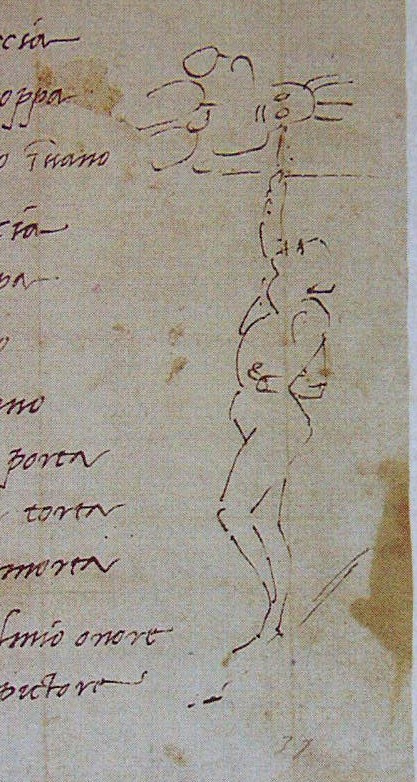 ccia
oppa
o i͞nano
cia
pa
o
nno
porta
torta
morta
lmio onore
pictore
37